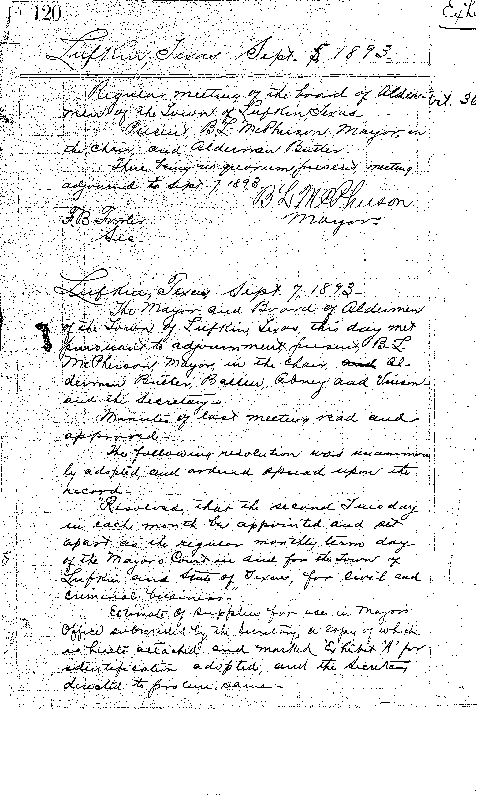 120
Exh
Lufkin, Texas Sept. 5 1893
Regular meeting of the board of Alder-
men of the Town of Lufkin Texas
Present B L McPherson Mayor in
the chair, and Alderman Butler
There being no quorum present, meeting
adjourned to Sept 7, 1893
B L McPherson
Mayor
F B
Sec
Lufkin, Texas Sept 7, 1893
The Mayor and Board of Aldermen
of the Town of Lufkin, Texas, this day met
pursuant to adjournment, present, B L
McPherson, Mayor, in the chair, and Al-
dermen Butler, Abney and
and the Secretary
Minutes of last meeting read and
approved
The following resolution was unanimous
ly adopted and ordered spread upon the
record
Resolved, that the second Tuesday
in each month be appointed and set
apart as the regular monthly term day
of the Mayors Court in and for the Town of
Lufkin and State of Texas, for civil and
criminal business."
Estimate of supplies for use in Mayors
Office submitted by the Secretary a copy of which
is hereto attached and marked Exhibit "A" for
identification adopted, and the Secretary
directed to procure same